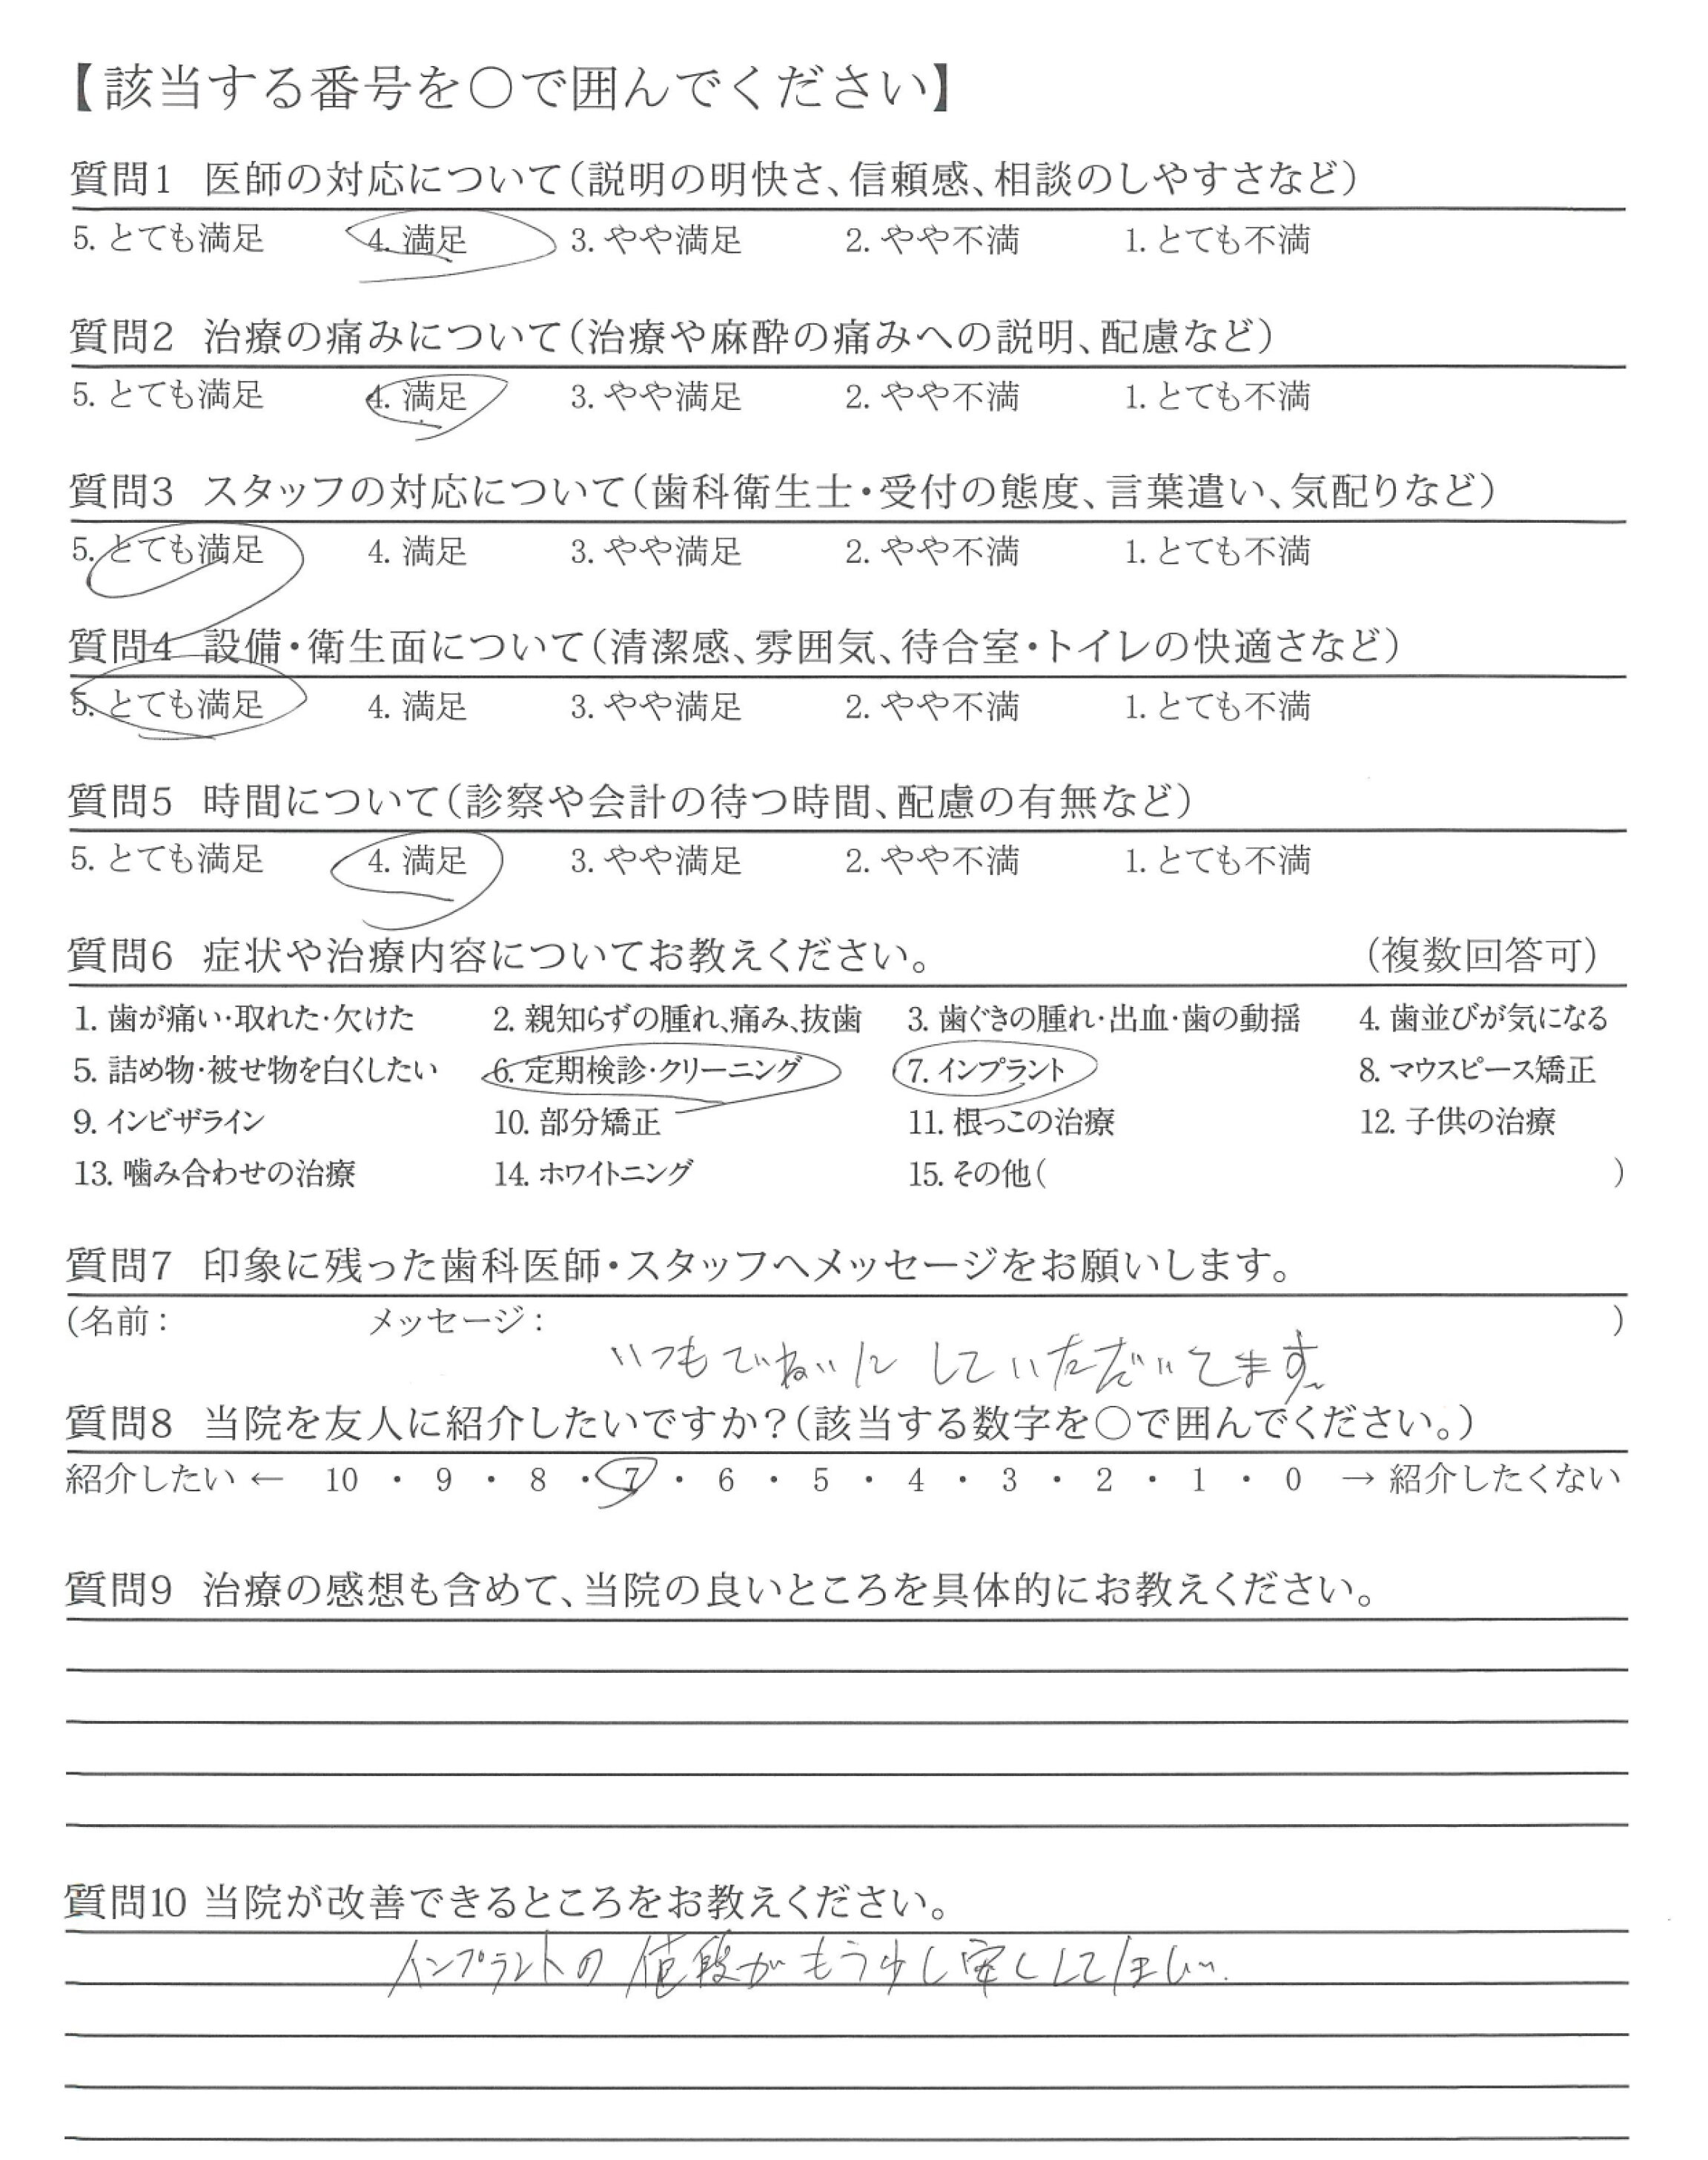 【該当する番号を○で囲んでください】
質問1 医師の対応について（説明の明快さ、信頼感、相談のしやすさなど）
5. とても満足 4. 満足 3. やや満足 2. やや不満 1. とても不満
質問2 治療の痛みについて（治療や麻酔の痛みへの説明、配慮など）
5. とても満足 4. 満足 3. やや満足 2. やや不満 1. とても不満
質問3 スタッフの対応について（歯科衛生士・受付の態度、言葉遣い、気配りなど）
5. とても満足 4. 満足 3. やや満足 2. やや不満 1. とても不満
質問4 設備・衛生面について（清潔感、雰囲気、待合室・トイレの快適さなど）
5. とても満足 4. 満足 3. やや満足 2. やや不満 1. とても不満
質問5 時間について（診察や会計の待つ時間、配慮の有無など）
5. とても満足 4. 満足 3. やや満足 2. やや不満 1. とても不満
質問6 症状や治療内容についてお教えください。 （複数回答可）
1. 歯が痛い・取れた・欠けた 2. 親知らずの腫れ、痛み、抜歯 3. 歯ぐきの腫れ・出血・歯の動揺 4. 歯並びが気になる
5. 詰め物・被せ物を白くしたい 6. 定期検診・クリーニング 7. インプラント 8. マウスピース矯正
9. インビザライン 10. 部分矯正 11. 根っこの治療 12. 子供の治療
13. 噛み合わせの治療 14. ホワイトニング 15. その他（ ）
質問7 印象に残った歯科医師・スタッフへメッセージをお願いします。
（名前： メッセージ： ）
いつもていねいにしていただいてます
質問8 当院を友人に紹介したいですか？（該当する数字を○で囲んでください。）
紹介したい ← 10 ・ 9 ・ 8 ・ 7 ・ 6 ・ 5 ・ 4 ・ 3 ・ 2 ・ 1 ・ 0 → 紹介したくない
質問9 治療の感想も含めて、当院の良いところを具体的にお教えください。
質問10 当院が改善できるところをお教えください。
インプラントの値段がもう少し安くしてほしい.